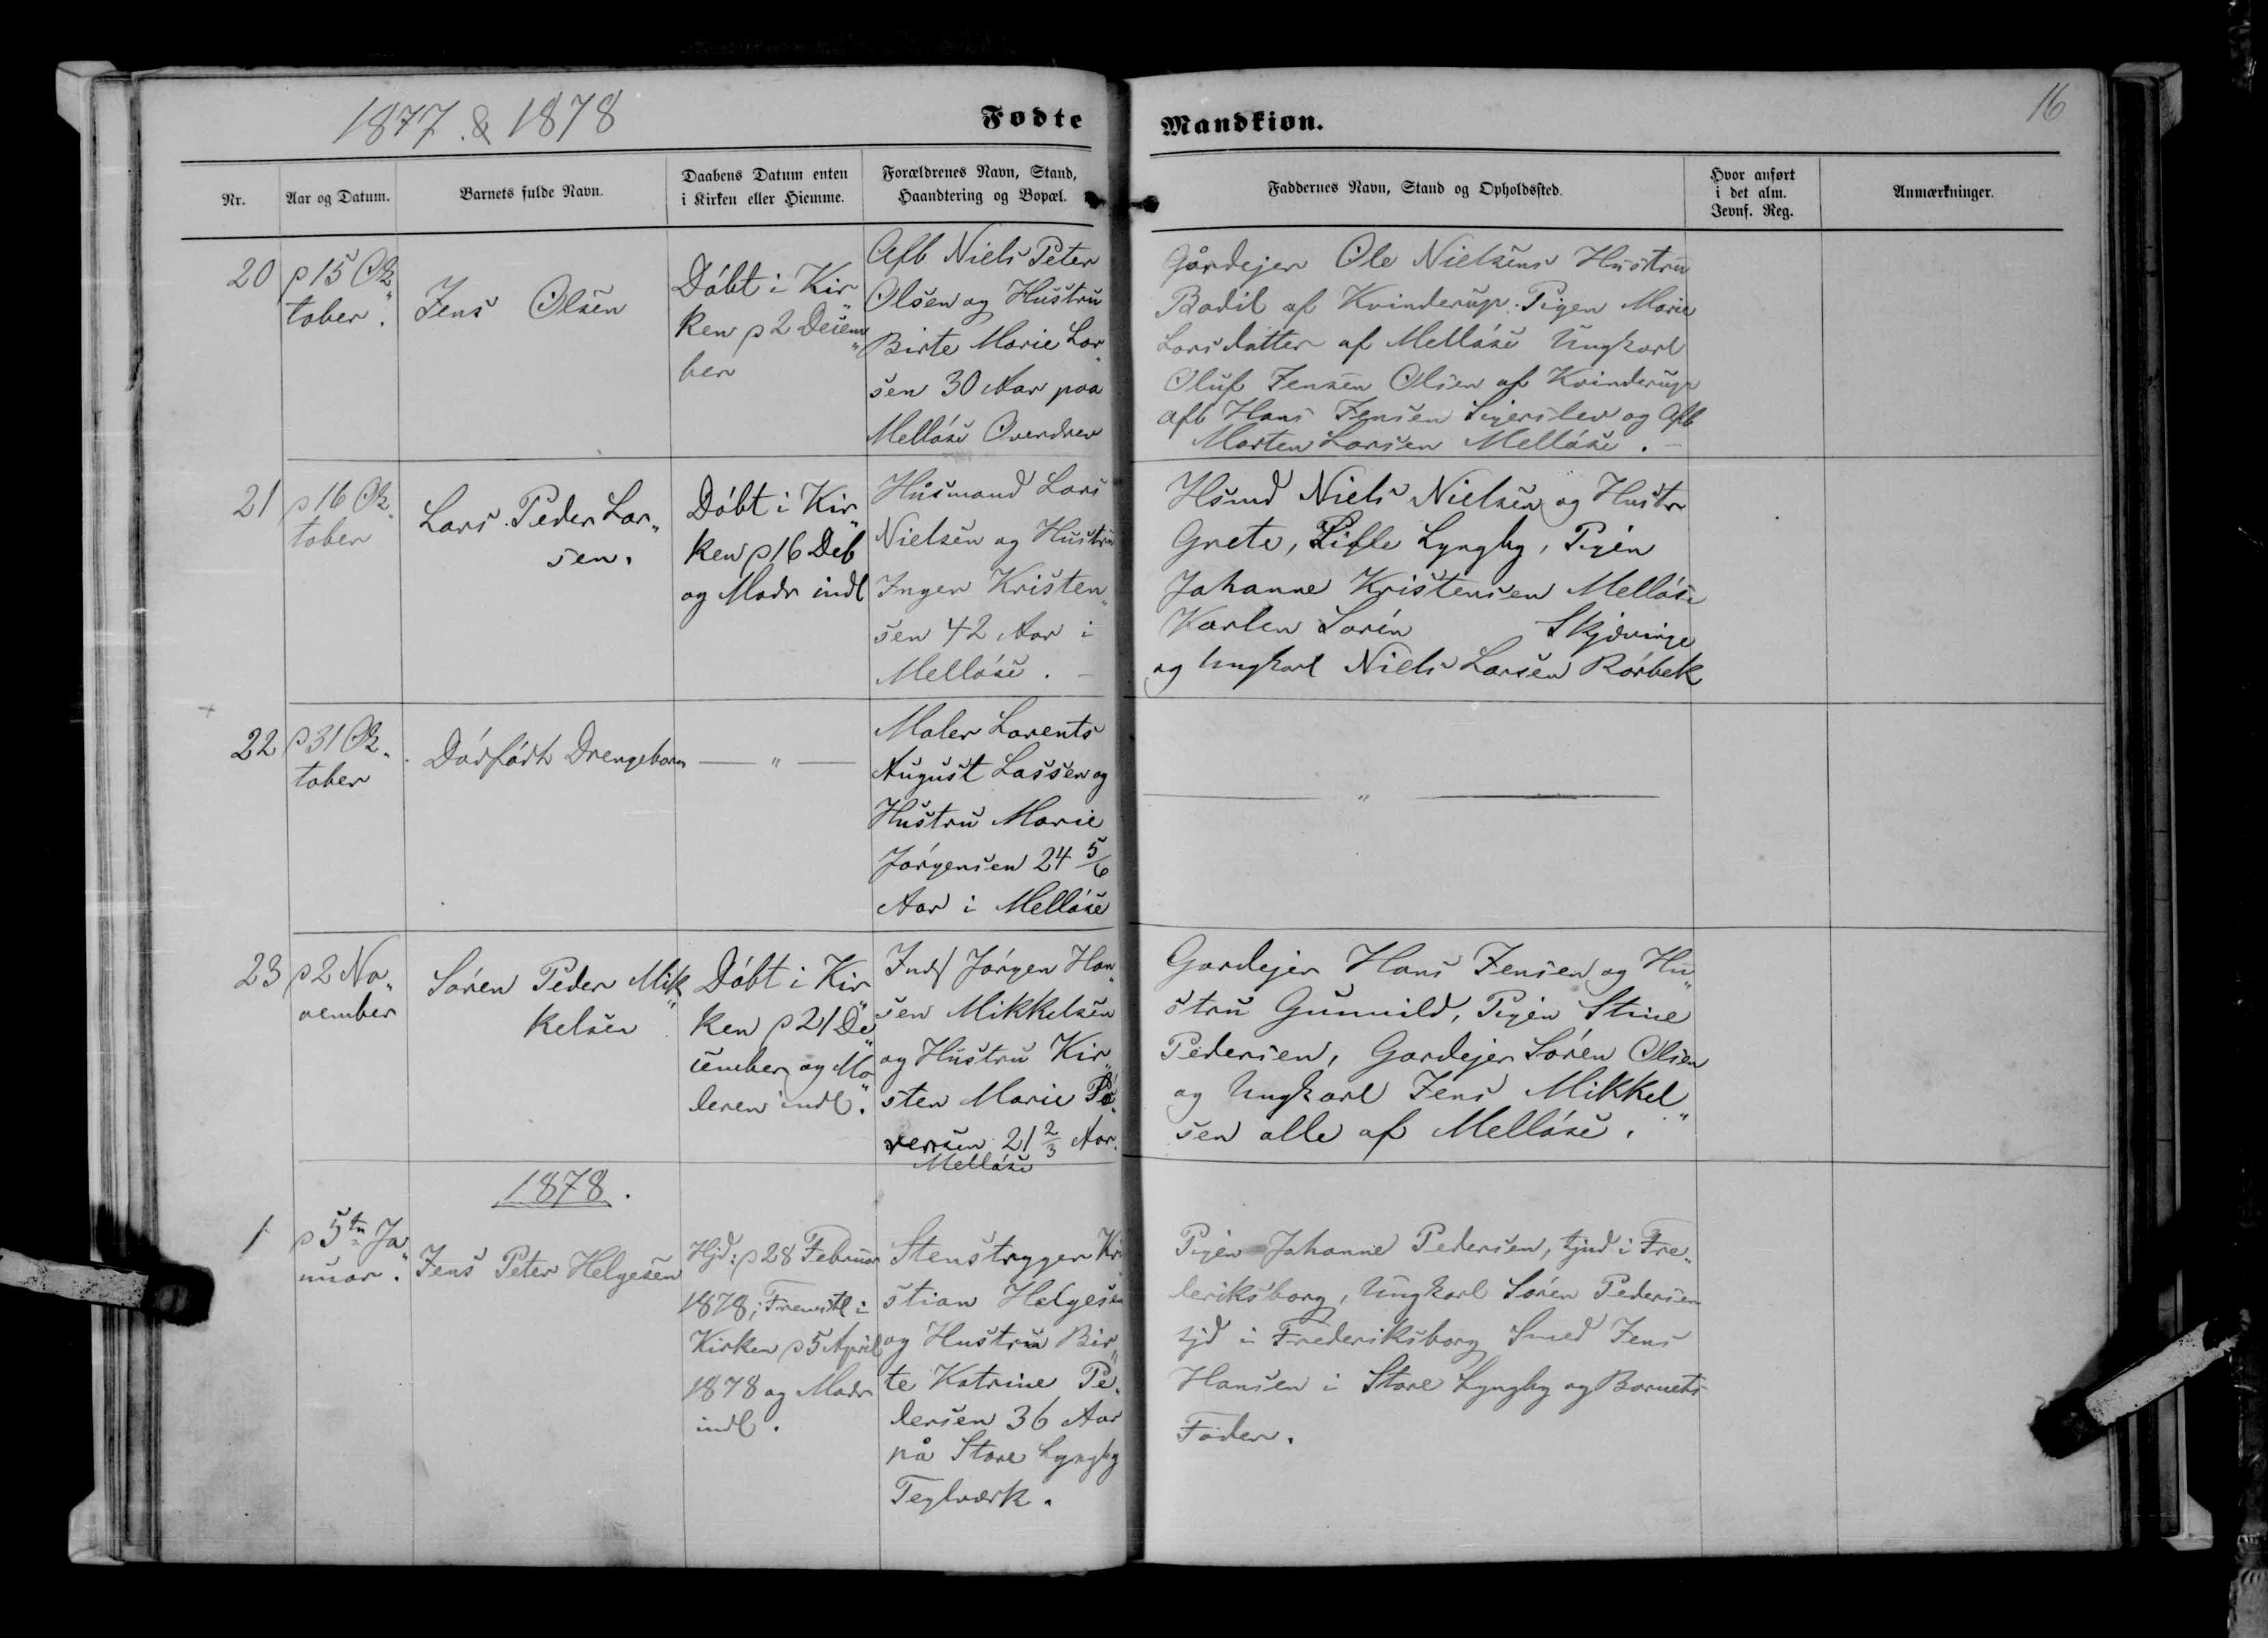 1877 & 1878
Fødte
Mandkiøn.
16
Nr.
Aar og Datum.
Barnets fulde Navn.
Daabens Datum enten
i Kirken eller Hiemme.
Forældrenes Navn, Stand,
Haandtering og Bopæl.
Faddernes Navn, Stand og Opholdssted.
Hvor anført
i det alm.
Jevnf. Reg.
Anmærkninger.
20
p 15 Ok„
tober.
Jens Olsen
Döbt i Kir„
ken p 2 Decem„
ber
Aftb Niels Peter
Olsen og Hustru
Birte Marie Lar„
sen 30 Aar paa
Mellöse Overdrev
Gårdejer Ole Nielsens Hustru
Bodil af Kvinderup. Pigen Marie
Larsdatter af Mellöse Ungkarl
Oluf Jensen Olsen af Kvinderup
Aftb Hans Jensen Sigerslev og Aftb
Morten Larsen Mellöse.
21
p 16 Ok„
tober
Lars Peder Lar„
sen.
Döbt i Kir„
ken p 16 Deb
og Modr indl
Husmand Lars
Nielsen og Hustru
Inger Kristen„
sen 42 Aar i
Mellöse.
Hsmd Niels Nielsen og Hustr
Grete, Lille Lyngby, Pigen
Johanne Kristensen Mellöse
Karlen Sörén Skjævinge
og Ungkarl Niels Larsen Rörbek
22
p 31 Ok„
tober
Dödfödt Drengebarn
— „ —
Maler Lorents
August Lassen og
Hustru Marie
Jörgensen 24 5/6
Aar i Mellöse
— „ —
23
p 2 No„
vember
Sören Peder Mik„
kelsen
Döbt i Kir„
ken p 21 De„
cember og Mo„
deren indl.
Inds Jörgen Han„
sen Mikkelsen
og Hustru Kir„
sten Marie Pe„
dersen 21 2/3 Aar.
Mellöse
Gardejer Hans Jensen og Hu„
stru Gunnild, Pigen Stine
Pedersen, Gardejer Sören Olsen
og Ungkarl Jens Mikkel„
sen alle af Mellöse.
1878.
1
p 5te Ja„
nuar.
Jens Peter Helgesen
Hjd: p 28 Februar
1878; Fremstl i
Kirken p 5 April
1878 og Modr
indl.
Stenstryger Kri
stian Helgesen
og Hustru Bir„
te Katrine Pe„
dersen 36 Aar
på Store Lyngby
Teglværk.
Pigen Johanne Pedersen, tjnd i Fre„
deriksborg, Ungkarl Sören Pedersen
tjd i Frederiksborg Smed Jens
Hansen i Store Lyngby og Barnets
Fader.